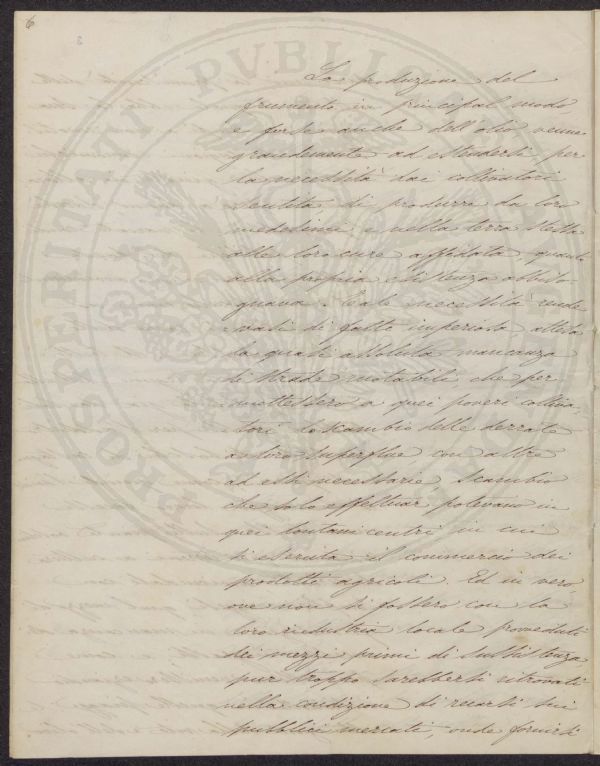 6
La produzione del
frumento in principal modo,
e forse anche dell'olio venne
grandemente ad estendersi, per
la necessità dai coltivatori
sentita di produrre da loro
medesimi, e nella terra stessa
alle loro cure affidata, quanto
alla propria esistenza abbiso-
gnava. Tale necessità rende-
vasi di fatto imperiosa attesa
la quasi assoluta mancanza
di strade rotabili, che per
mettessero a quei poveri coltiva-
tori lo scambio delle derrate
a loro superflue con altre
ad essi necessarie, scambio
che solo effettuar potevano in
quei lontani centri in cui
si esercita il commercio dei
prodotti agricoli. Ed in vero,
ove non si fossero con la
loro industria locale provveduti
dei mezzi primi di sussistenza
pur troppo sarebbersi ritrovati
nella condizione di recarsi sui
pubblici mercati, onde fornirsi
PROSPERITATI PUBLICAE